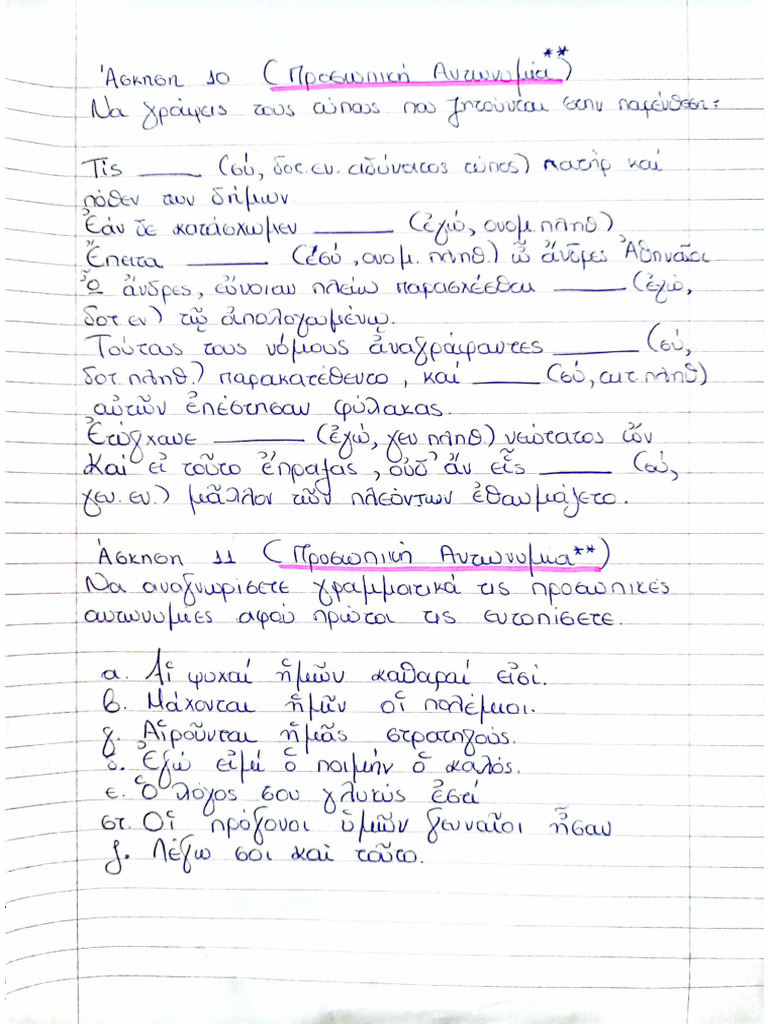 Άσκηση 10 (Προσωπική Αντωνυμία**)
Να γράψεις τους τύπους που ζητούνται στην παρένθεση:
Τίς _____ (σύ, δοτ. εν. αδύνατος τύπος) πατήρ καί
πόθεν των δήμων
Ἐάν δε κατάσχωμεν _______ (ἐγώ, ονομ. πληθ.)
Ἔπειτα _______ (ἐσύ, ονομ. πληθ.) ὦ ἄνδρες Ἀθηναῖοι
Ὦ ἄνδρες, εὔνοιαν πλείω παρασχέσθαι ______ (ἐγώ,
δοτ. εν) τῷ ἀπολογωμένῳ.
Τούτους τους νόμους ἀναγράψαντες _______ (σύ,
δοτ. πληθ.) παρακατέθεντο, καί _____ (σύ, αιτ. πληθ)
αὐτῶν ἐπέστησαν φύλακας.
Ἐτύγχανε _______ (ἐγώ, γεν πληθ.) νεώτατος ὤν
Καί εἰ τοῦτο ἔπραξας, οὐδ' ἄν εἷς ______ (σύ,
γεν. εν.) μᾶλλον τῶν πλεόντων ἐθαυμάζετο.
Άσκηση 11 (Προσωπική Αντωνυμία**)
Να αναγνωρίσετε γραμματικά τις προσωπικές
αντωνυμίες αφού πρώτα τις εντοπίσετε.
α. Αἱ ψυχαί ἡμῶν καθαραί εἰσί.
β. Μάχονται ἡμῖν οἱ πολέμιοι.
γ. Αἱροῦνται ἡμᾶς στρατηγούς.
δ. Ἐγώ εἰμί ὁ ποιμήν ὁ καλός.
ε. Ὁ λόγος σου γλυκύς ἐστί
στ. Οἱ πρόγονοι ὑμῶν γενναῖοι ἦσαν
ζ. Λέξω σοι καί τοῦτο.